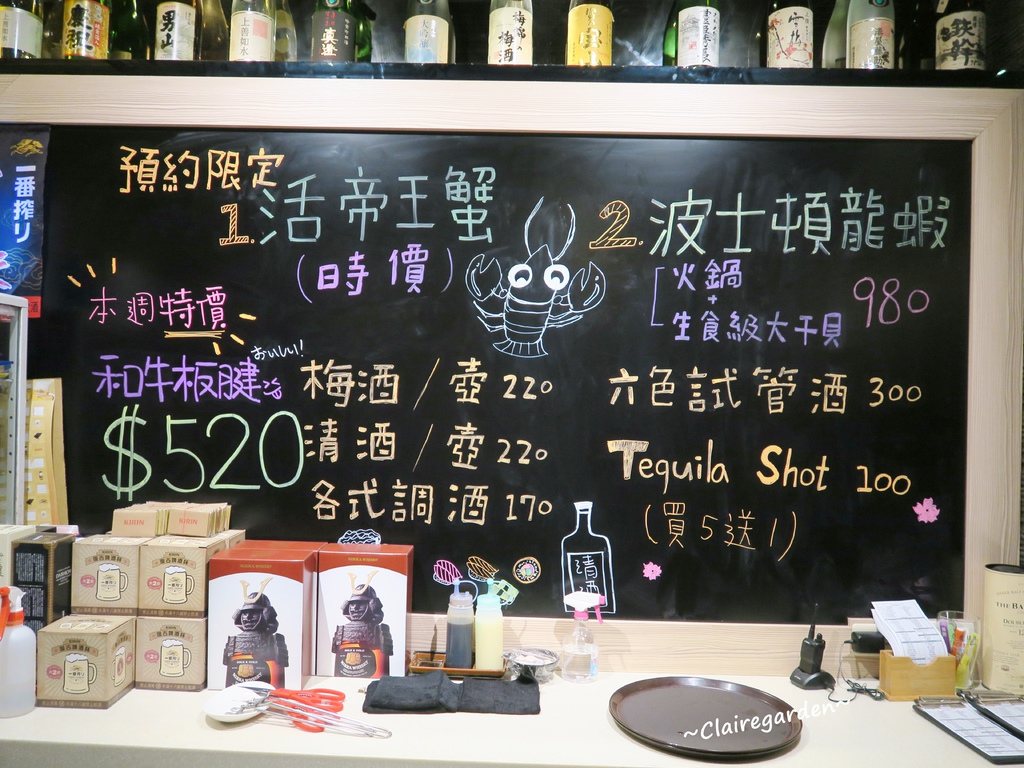 預約限定
1.活帝王蟹
(時價)
2.波士頓龍蝦
火鍋
+
生食級大干貝
980
本週特價
おいしい!
和牛板腱
$520
梅酒/壺 220
清酒/壺 220
各式調酒 170
六色試管酒 300
Tequila Shot 100
(買5送1)
清酒
一番搾り
男山
上善如水
梅酒
KIRIN
KIRIN
~Clairegarden~